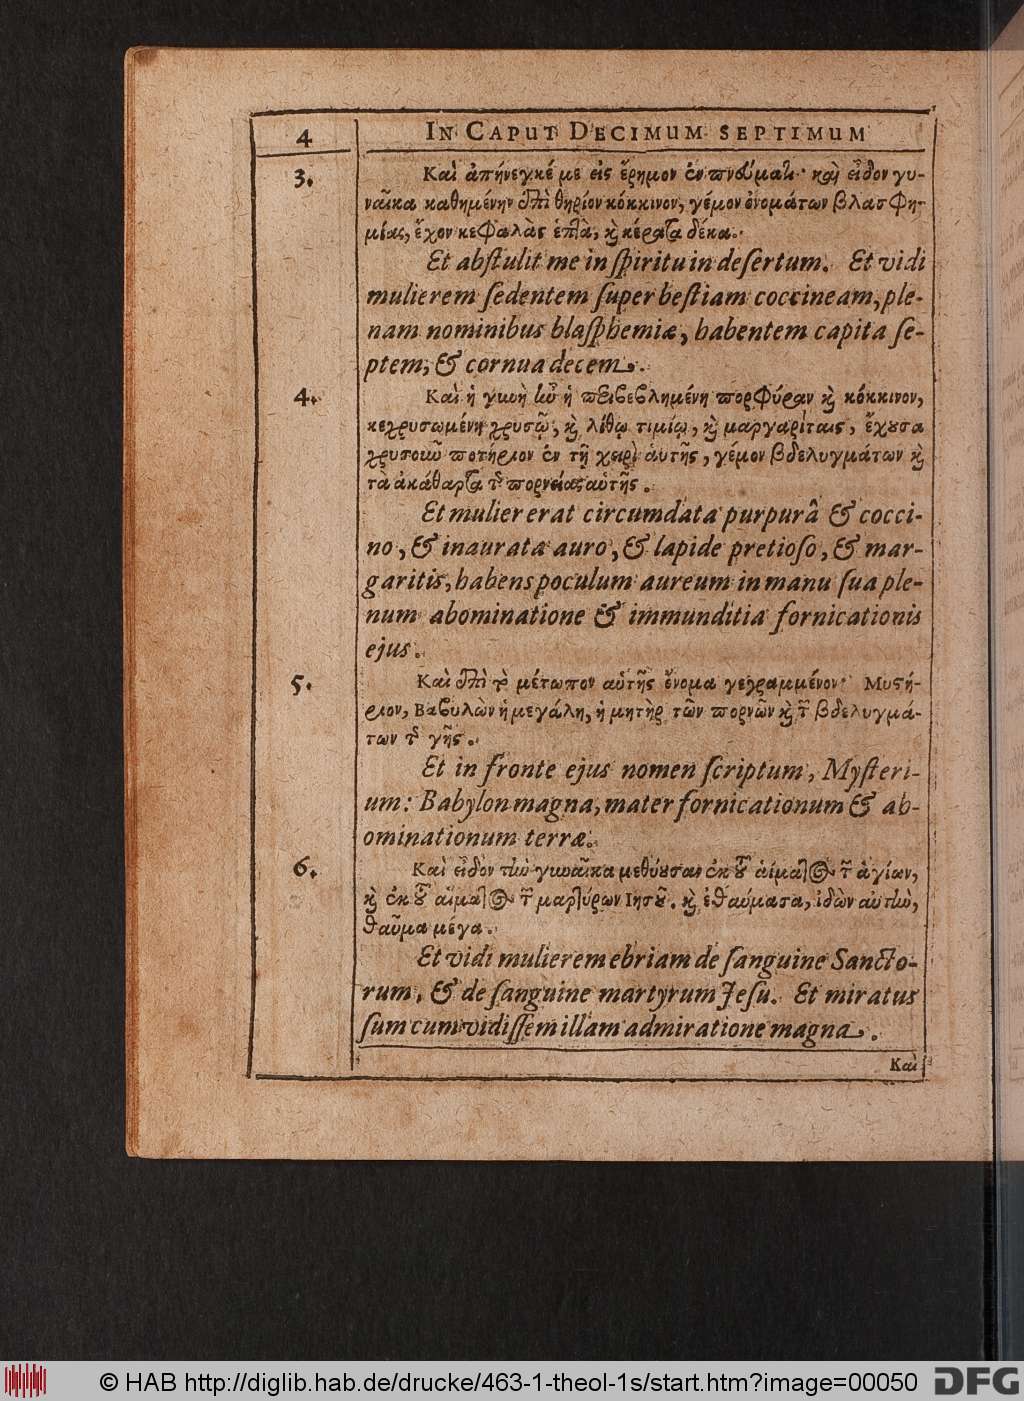 4 IN CAPUT DECIMUM SEPTIMUM
3. Καὶ ἀπήνεγκέ με εἰς ἔρημον ἐν πνεύματι· καὶ εἶδον γυ-
ναῖκα καθημένην ἐπὶ θηρίον κόκκινον, γέμον ὀνομάτων βλασφη-
μίας, ἔχον κεφαλὰς ἑπτὰ, καὶ κέρατα δέκα.
Et abſtulit me in ſpiritu in deſertum. Et vidi
mulierem ſedentem ſuper beſtiam coccineam, ple-
nam nominibus blaſphemiæ, habentem capita ſe-
ptem, & cornua decem.
4. Καὶ ἡ γυνὴ ἦν ἡ περιβεβλημένη πορφύραν καὶ κόκκινον,
κεχρυσωμένη χρυσῷ, καὶ λίθῳ τιμίῳ, καὶ μαργαρίταις, ἔχουσα
χρυσοῦν ποτήριον ἐν τῇ χειρὶ αὐτῆς, γέμον βδελυγμάτων καὶ
τὰ ἀκάθαρτα τῆς πορνείας αὐτῆς.
Et mulier erat circumdata purpurâ & cocci-
no, & inaurata auro, & lapide pretioſo, & mar-
garitis, habens poculum aureum in manu ſua ple-
num abominatione & immunditia fornicationis
ejus.
5. Καὶ ἐπὶ τὸ μέτωπον αὑτῆς ὄνομα γεγραμμένον· Μυστή-
ριον, Βαβυλὼν ἡ μεγάλη, ἡ μητὴρ τῶν πορνῶν καὶ τῶν βδελυγμά-
των τῆς γῆς.
Et in fronte ejus nomen ſcriptum, Myſteri-
um: Babylon magna, mater fornicationum & ab-
ominationum terræ.
6. Καὶ εἶδον τὴν γυναῖκα μεθύουσαν ἐκ τοῦ αἵματος τῶν ἁγίων,
καὶ ἐκ τοῦ αἵματος τῶν μαρτύρων Ιησοῦ. καὶ ἐθαύμασα, ἰδὼν αὐτὴν,
θαῦμα μέγα.
Et vidi mulierem ebriam de ſanguine Sancto-
rum, & de ſanguine martyrum Jeſu. Et miratus
ſum cum vidiſſem illam admiratione magna.
Καὶ
© HAB http://diglib.hab.de/drucke/463-1-theol-1s/start.htm?image=00050 DFG